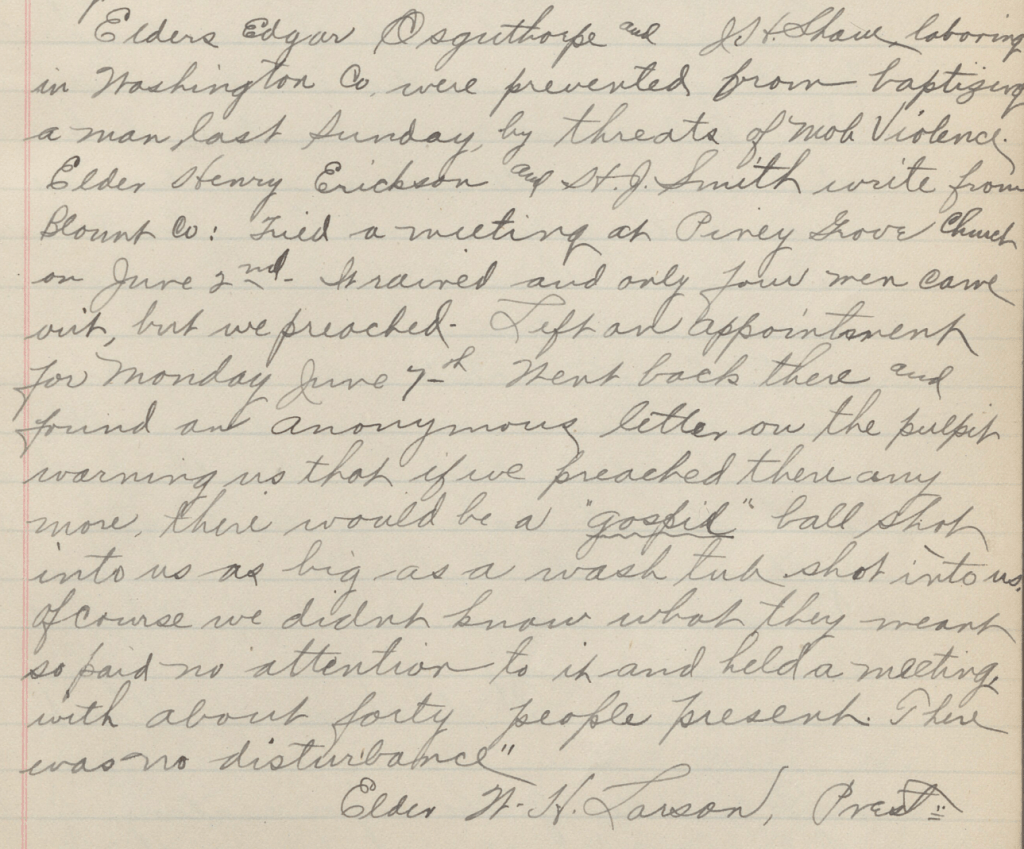 Elders Edgar Osguthorpe and J. H. Shaw, laboring
in Washington Co, were prevented from baptizing
a man, last Sunday, by threats of Mob Violence.
Elder Henry Erickson and H. J. Smith write from
Blount Co: Tried a meeting at Piney Grove Church
on June 2nd- It rained and only four men came
out, but we preached- Left an appointment
for Monday June 7-th Went back there and
found an anonymous letter on the pulpit
warning us that if we preached there any
more, there would be a "gospil" ball shot
into us as big as a wash tub shot into us.
Of course we didnt know what they meant
so paid no attention to it and held a meeting,
with about forty people present. There
was no disturbance"
Elder W. H. Larson, Prest=